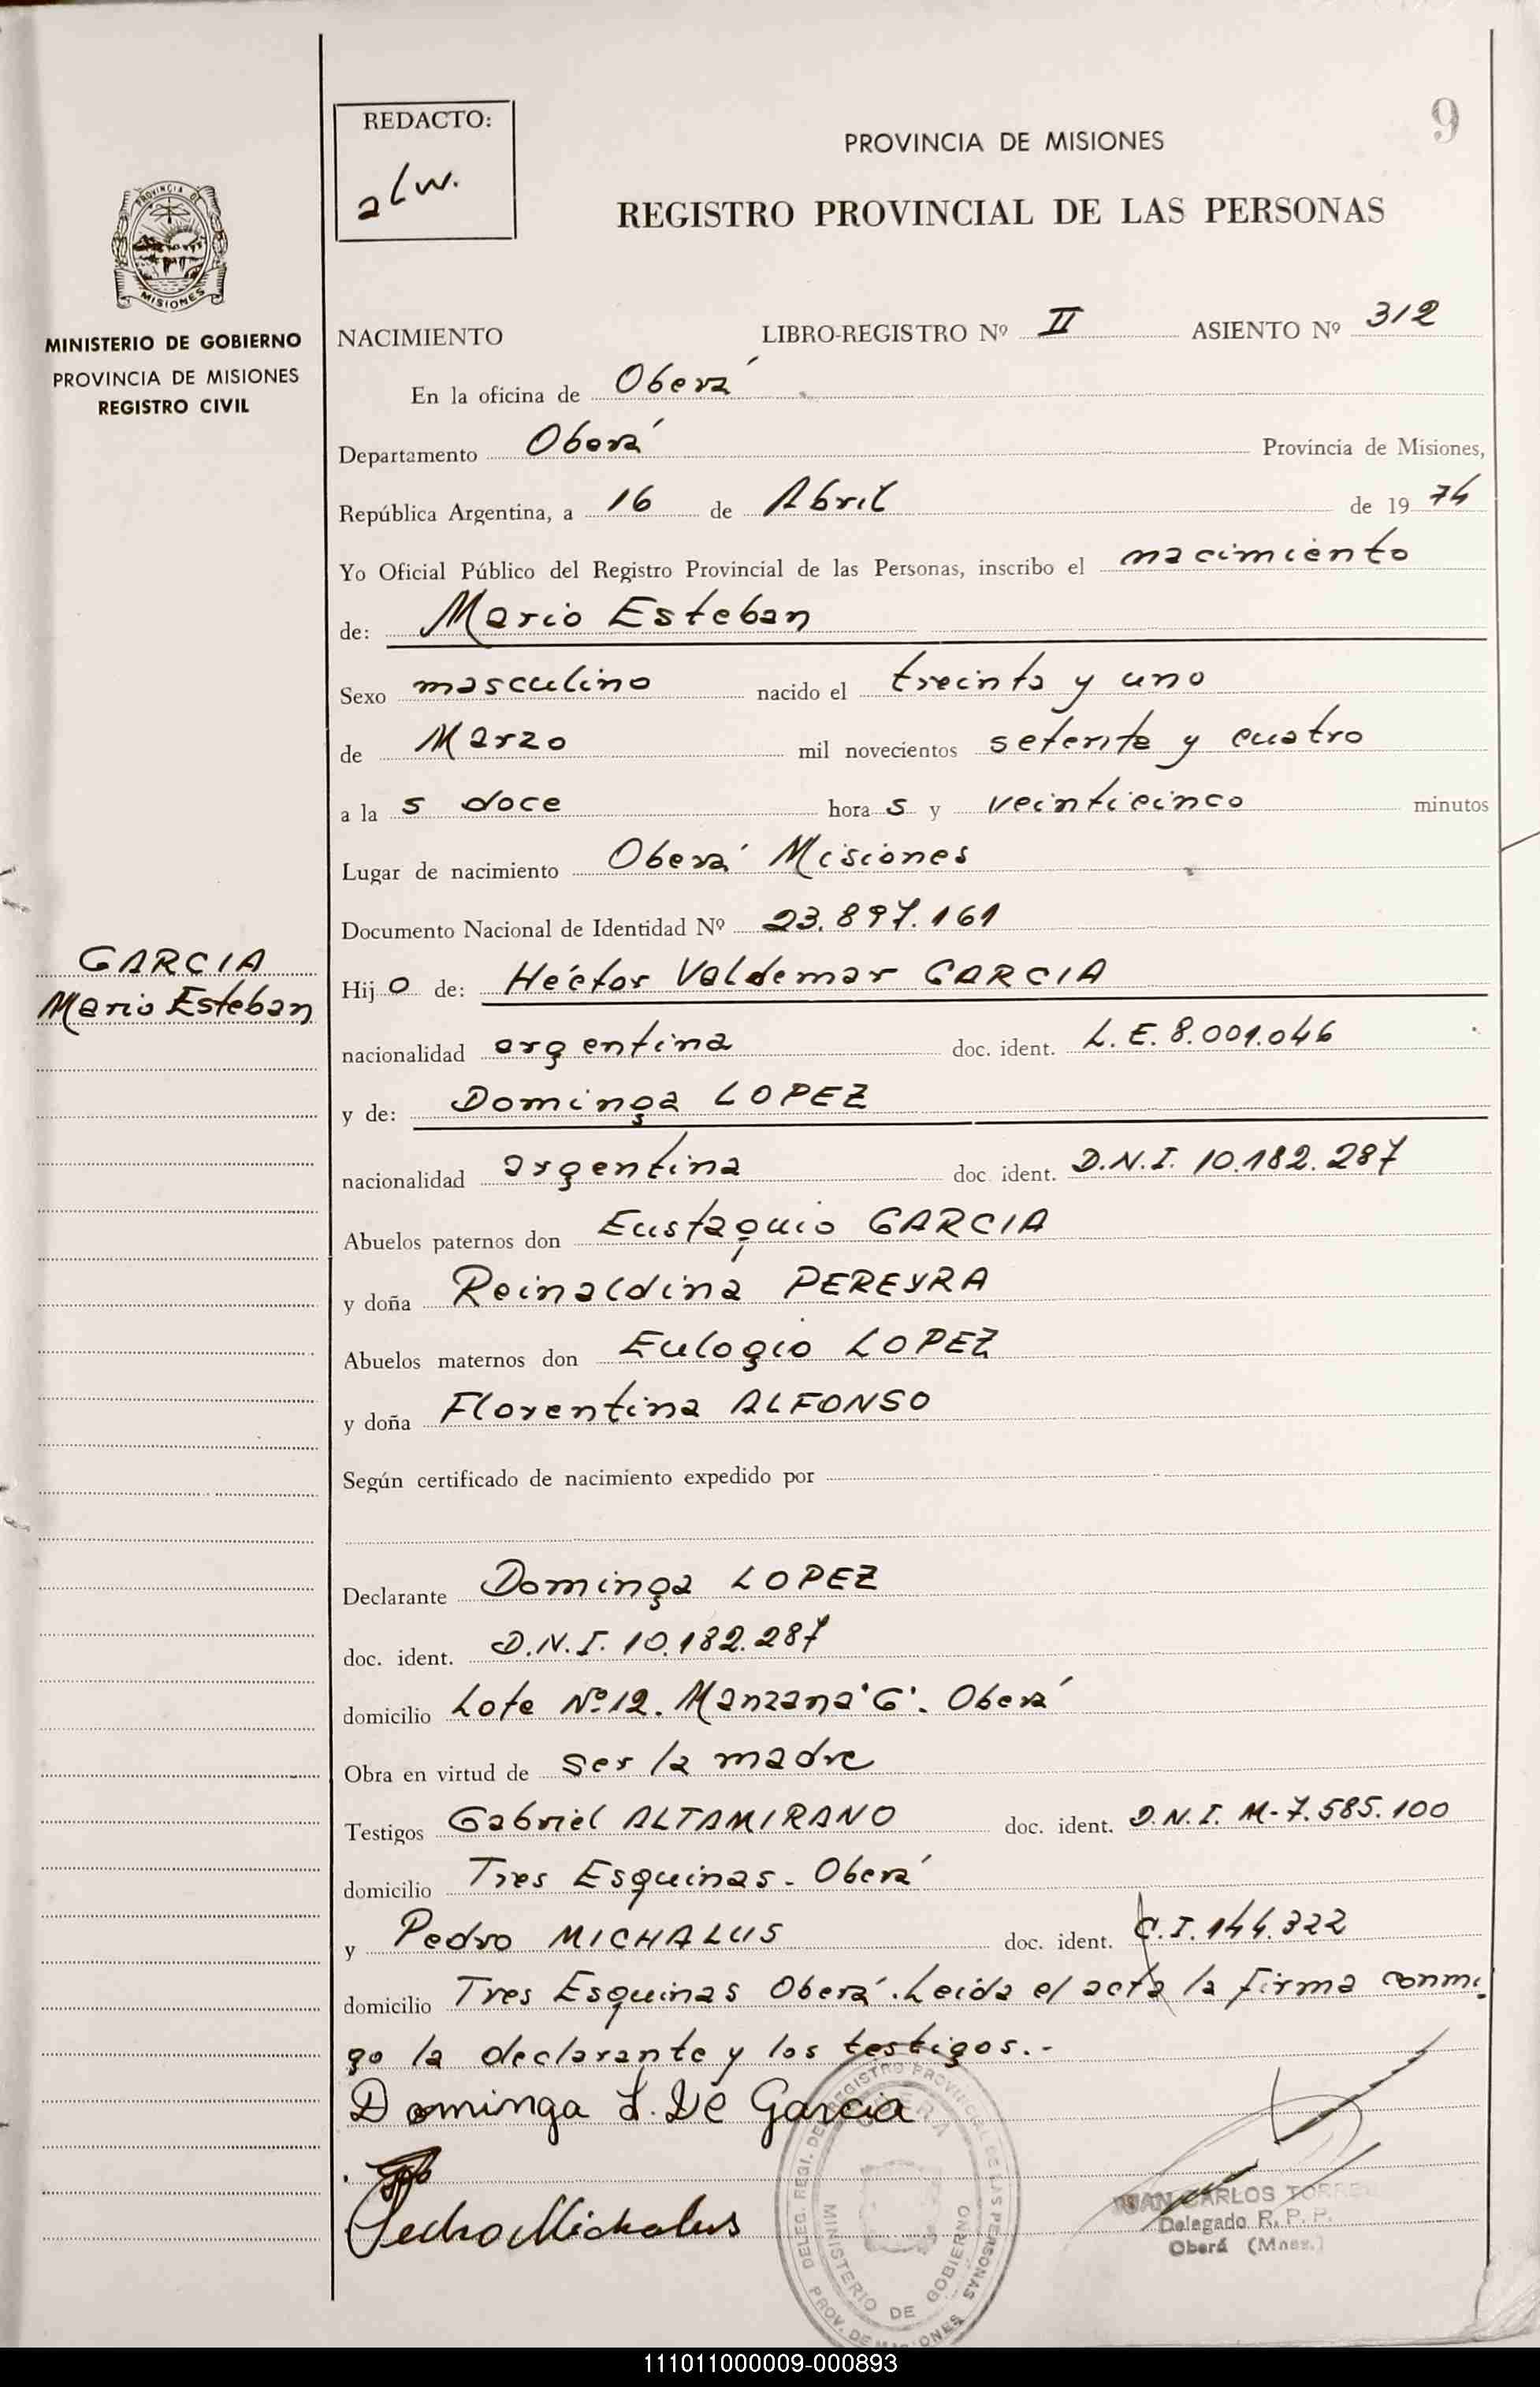 REDACTO:
alw.
9
PROVINCIA DE MISIONES
REGISTRO PROVINCIAL DE LAS PERSONAS
PROVINCIA DE
MISIONES
MINISTERIO DE GOBIERNO
PROVINCIA DE MISIONES
REGISTRO CIVIL
NACIMIENTO LIBRO-REGISTRO Nº II ASIENTO Nº 312
En la oficina de Oberá
Departamento Oberá Provincia de Misiones,
República Argentina, a 16 de Abril de 1974
Yo Oficial Público del Registro Provincial de las Personas, inscribo el nacimiento
de: Mario Esteban
Sexo masculino nacido el treinta y uno
de Marzo mil novecientos setenta y cuatro
a la s doce hora s y veinticinco minutos
Lugar de nacimiento Oberá Misiones
Documento Nacional de Identidad Nº 23.897.161
GARCIA
Mario Esteban
Hijo de: Héctor Valdemar GARCIA
nacionalidad argentina doc. ident. L.E. 8.001.046
y de: Dominga LOPEZ
nacionalidad argentina doc. ident. D.N.I. 10.182.287
Abuelos paternos don Eustaquio GARCIA
y doña Reinaldina PEREYRA
Abuelos maternos don Eulogio LOPEZ
y doña Florentina ALFONSO
Según certificado de nacimiento expedido por
Declarante Dominga LOPEZ
doc. ident. D.N.I. 10.182.287
domicilio Lote Nº 12. Manzana 'G'. Oberá
Obra en virtud de ser la madre
Testigos Gabriel ALTAMIRANO doc. ident. D.N.I. M-7.585.100
domicilio Tres Esquinas - Oberá
y Pedro MICHALUS doc. ident. C.I. 144.322
domicilio Tres Esquinas Oberá. Leída el acta la firma conmi
go la declarante y los testigos.-
Dominga L. De Garcia
Pedro Michalus
DELEG. REGI. DEL REGISTRO PROVINCIAL DE LAS PERSONAS
OBERA
MINISTERIO DE GOBIERNO
PROV. DE MISIONES
JUAN CARLOS TORRES
Delegado R. P. P.
Oberá (Mnes.)
111011000009-000893